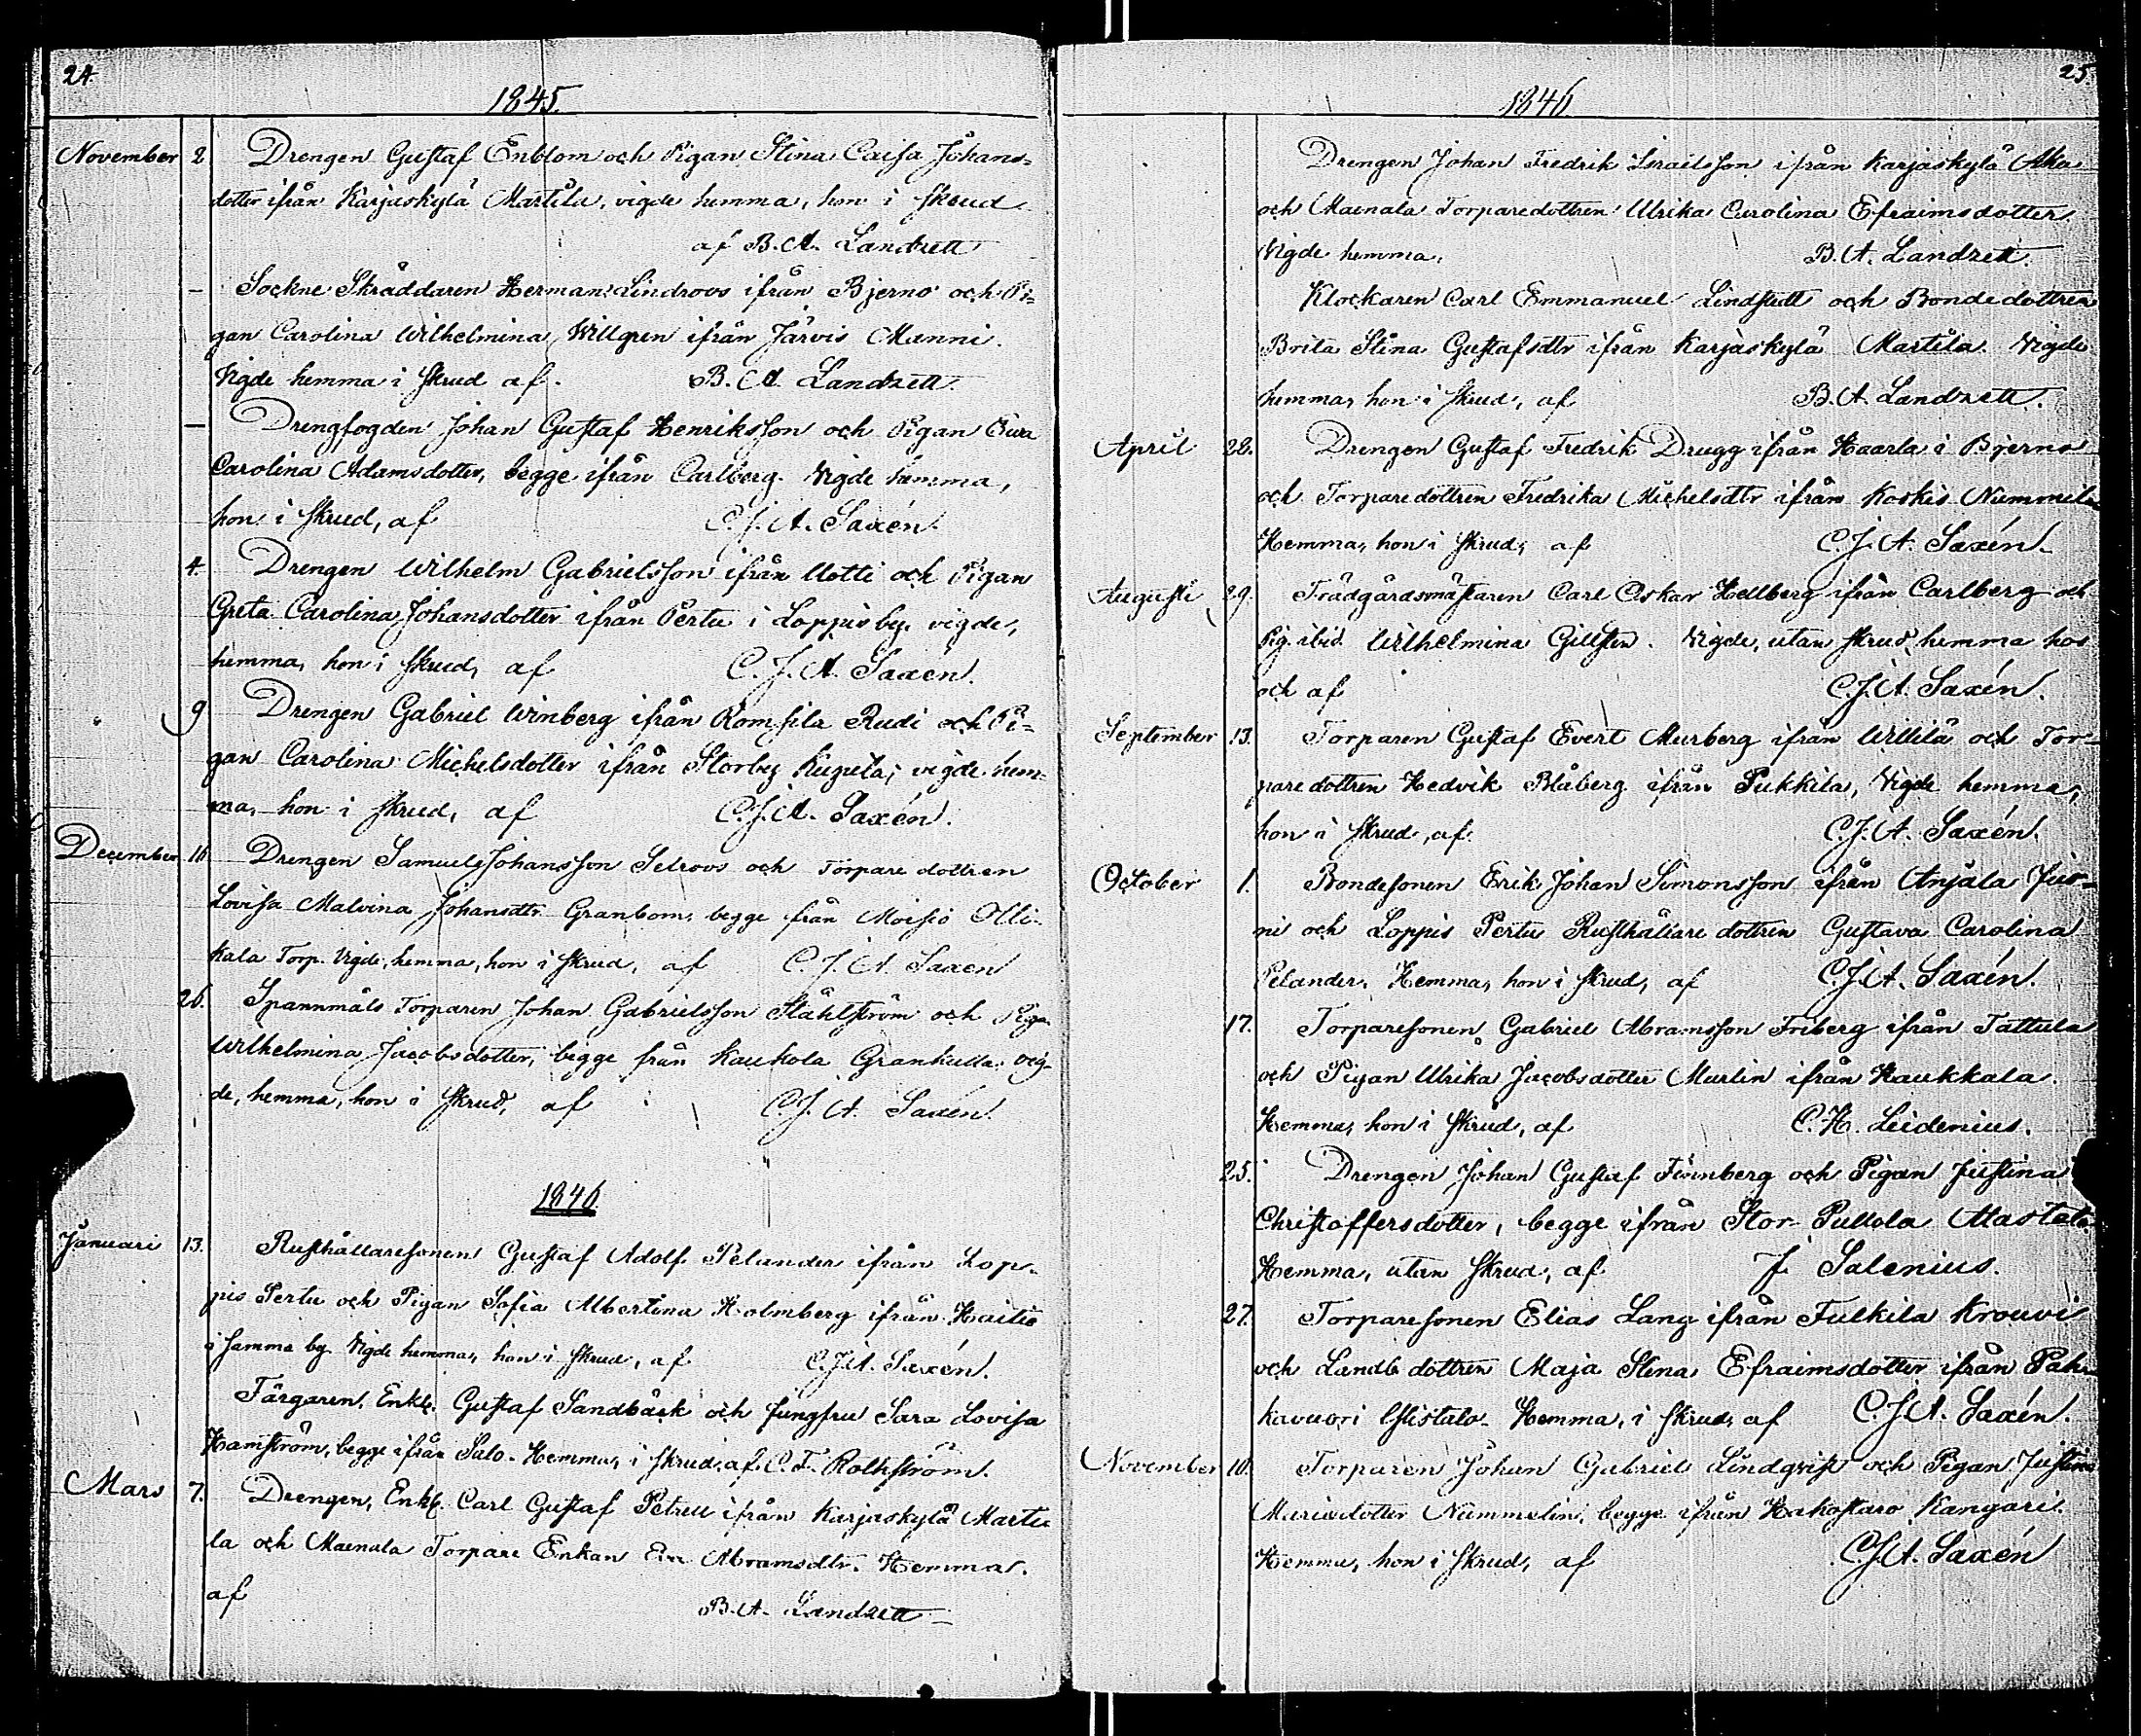 24.
1845.
November 2. Drengen Gustaf Enblom och Pigan Stina Caisa Johans-
dotter ifrån Karjaskylä Martila, vigde hemma, hon i skrud
af B. A. Landzett
— Sockne Skräddaren Herman Lindroos ifrån Bjerno och Pi-
gan Carolina Wilhelmina Willgren ifrån Järvis Manni.
Vigde hemma i skrud af. B. A. Landzett.
— Drengfogden Johan Gustaf Henriksson och Pigan Eva
Carolina Adamsdotter, begge ifrån Carlberg. Vigde hemma,
hon i skrud, af C. J. A. Saxén.
4. Drengen Wilhelm Gabrielsson ifrån Uotti och Pigan
Greta Carolina Johansdotter ifrån Pertu i Loppis by. vigde,
hemma, hon i skrud, af C. J. A. Saxén.
9 Drengen Gabriel Winberg ifrån Romsila Rudi och Pi-
gan Carolina Michelsdotter ifrån Storby vigde hem-
ma, hon i skrud, af C. J. A. Saxén.
December 16 Drengen Samuel Johansson Selroos och Torpare dottren
Lovisa Malvina Johansdtr Granbom, begge från Moisio Olli-
kala Torp. Vigde, hemma, hon i skrud, af C. J. A. Saxen
26. Spannmåls Torparen Johan Gabrielsson Ståhlström och Piga
Wilhelmina Jacobsdotter, begge från Kaukola Grankulla. vig-
de, hemma, hon i skrud, af C. J. A. Saxén.
1846.
Januari 13. Rusthållaresonen Gustaf Adolf Pelander ifrån Lop-
pis Pertu och Pigan Sofia Albertina Holmberg ifrån Haitio
i samma by. Vigde hemma, hon i skrud, af C. J. A. Saxén.
Färgaren, Enkl. Gustaf Sandbäck och Jungfru Sara Lovisa
Hamström, begge ifrån Salo. Hemma, i skrud, af C. F. Rothström.
Mars 7. Drengen, Enkl. Carl Gustaf Petrell ifrån Karjaskylä Marti-
la och Maenala Torpare Enkan Eva Abramsdtr. Hemma.
af B. A. Landzett
25
1846
Drengen Johan Fredrik Israilsson ifrån Karjaskylä
och Maenala Torparedottren Ulrika Carolina Efraimsdotter.
Vigde hemma. B. A. Landzett.
Klockaren Carl Emmanuel Lindstedt och Bondedottren
Brita Stina Gustafsdtr ifrån Karjaskylä Martila. Vigde
hemma, hon i skrud, af B. A. Landzett.
April 28. Drengen Gustaf Fredrik Drugg ifrån Haarla i Bjerno
och Torparedottren Fredrika Michelsdtr ifrån Koskis
Hemma, hon i skrud, af C. J. A. Saxén.
Augusti 29. Trädgårdsmästaren Carl Oskar Hellberg ifrån Carlberg och
Pig. ibid. Wilhelmina Gillsten. Vigde, utan skrud, hemma hos
och af C. J. A. Saxén.
September 13. Torparen Gustaf Evert Murberg ifrån Willilä och Tor-
paredottren Hedvik Blåberg ifrån Pukkila, Vigde hemma,
hon i skrud, af. C. J. A. Saxén.
October 1. Bondesonen Erik Johan Simonsson ifrån Anjala
ni och Loppis Pertu Rusthållare dottren Gustava Carolina
Pelander. Hemma, hon i skrud, af C. J. A. Saxén.
17. Torparesonen Gabriel Abramsson Friberg ifrån Tattula
och Pigan Ulrika Jacobsdotter Murlin ifrån Haukkala.
Hemma, hon i skrud, af C. H. Leidenius.
25. Drengen Johan Gustaf och Pigan Justina
Christoffersdotter, begge ifrån Stor Pullola
Hemma, utan skrud, af J. Salenius.
27. Torparesonen Elias Lang ifrån Fulkila Krouvi
och Landb. dottren Maja Stina Efraimsdotter ifrån Pah-
kavuori Hemma, i skrud, af C. J. A. Saxén.
November 10. Torparen Johan Gabriel Lindqvist och Pigan Justina
Mariedotter Nummelin, begge ifrån Hakostaro Kangari.
Hemma, hon i skrud, af C. J. A. Saxén